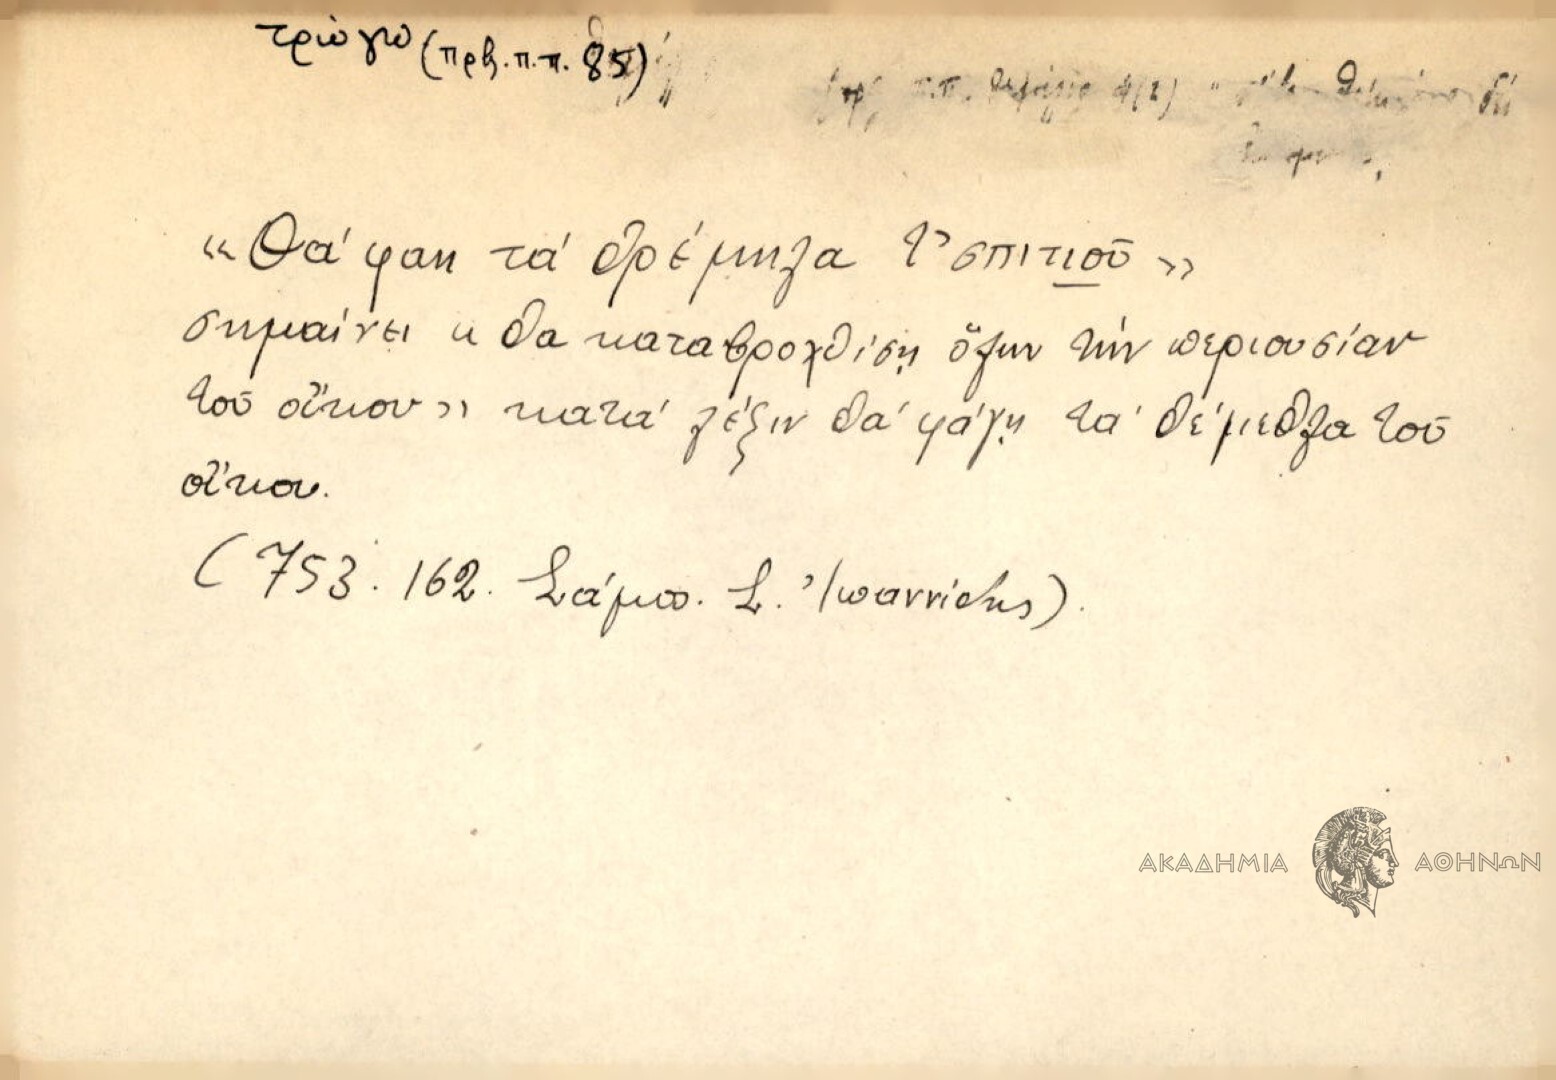 τρώγω (πρβ. π.π. 85)
«Θά φαη τά θρέμηλα τ' σπιτιοῦ»
σημαίνει «θα καταβροχθίσῃ ὅλην τήν περιουσίαν
τοῦ οἴκου» κατά λέξιν θά φάγῃ τά θέμεθλα τοῦ
οἴκου.
(753. 162. Σάμος. Σ. Ἰωαννίδης).
ΑΚΑΔΗΜΙΑ ΑΘΗΝΩΝ